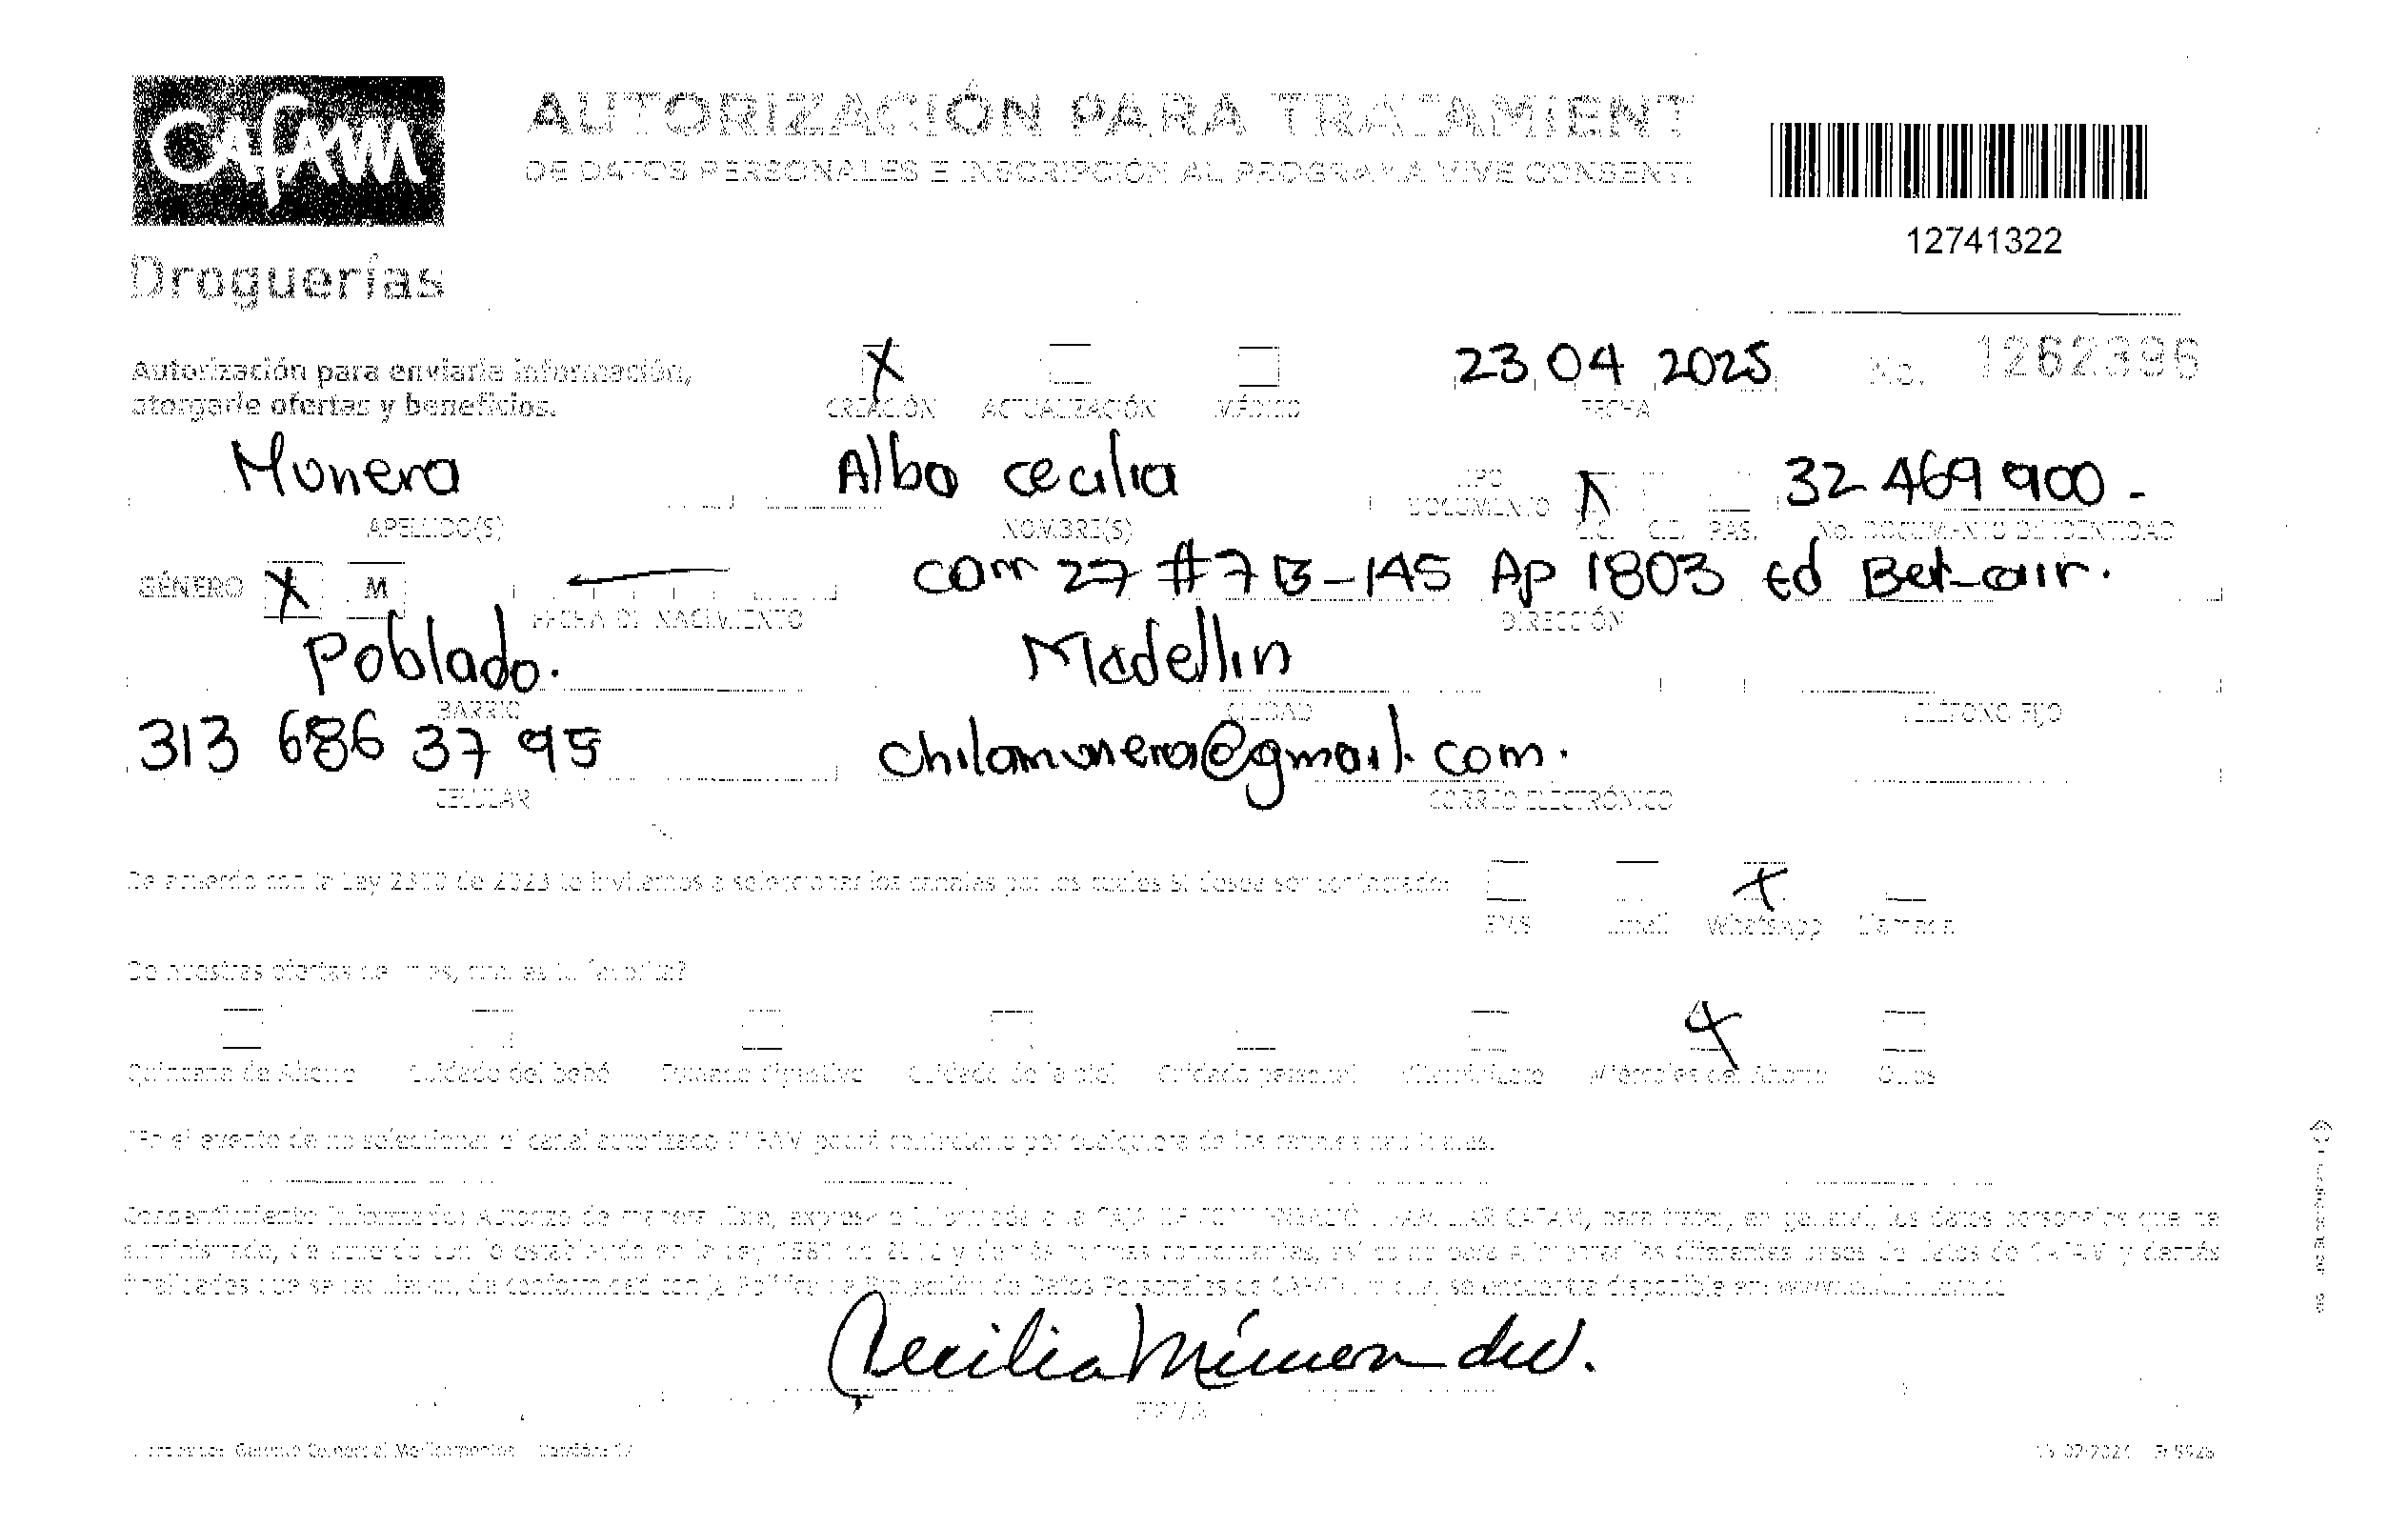 CAFAM
AUTORIZACIÓN PARA TRATAMIENT
DE DATOS PERSONALES E INSCRIPCIÓN AL PROGRAMA VIVE CONSENTI
12741322
Droguerías
Autorización para enviarle información,
otorgarle ofertas y beneficios.
X
CREACIÓN ACTUALIZACIÓN MÉDICO
23 04 2025
FECHA
No. 1262396
Munera Alba cecilia
TIPO DOCUMENTO X 32 469 900 -
APELLIDO(S) NOMBRE(S) C.C. C.E. PAS. No. DOCUMENTO DE IDENTIDAD
GÉNERO X M
carr 27 # 7 B-145 Ap 1803 Ed Bel-air.
FECHA DE NACIMIENTO DIRECCIÓN
Poblado. Medellin
BARRIO CIUDAD TELÉFONO FIJO
313 686 37 95 chilamunera@gmail.com.
CELULAR CORREO ELECTRÓNICO
De acuerdo con la Ley 2300 de 2023 te invitamos a seleccionar los canales por los cuales si desea ser contactado:
X
SMS Email WhatsApp Llamada
De nuestras ofertas del mes, cuál es tu favorita?
X
Quincena de Ahorro Cuidado del bebé Cuidado de la piel Cuidado personal Miércoles del Ahorro Otros
*En el evento de no seleccionar el canal autorizado CAFAM podrá contactarlo por cualquiera de los canales
Consentimiento Informado: Autorizo de manera libre, expresa e informada a la CAJA DE COMPENSACIÓN FAMILIAR CAFAM, para tratar, en general, los datos personales que he
suministrado, de acuerdo con lo establecido en la Ley 1581 de 2012 y demás normas concordantes, así como para alimentar las diferentes bases de datos de CAFAM y demás
finalidades que se de conformidad con la Política de Protección de Datos Personales de CAFAM, se encuentra disponible en:
Cecilia Múnera
FIRMA
Gerente Comercial Medicamentos Versión: